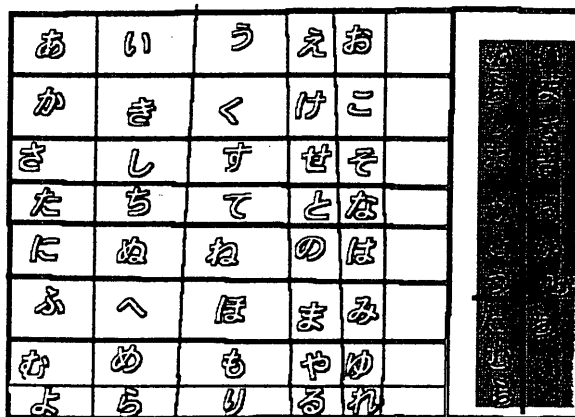 あ い う え お
か き く け こ
さ し す せ そ
た ち て と な
に ぬ ね の は
ふ へ ほ ま み
む め も や ゆ
よ ら り る れ